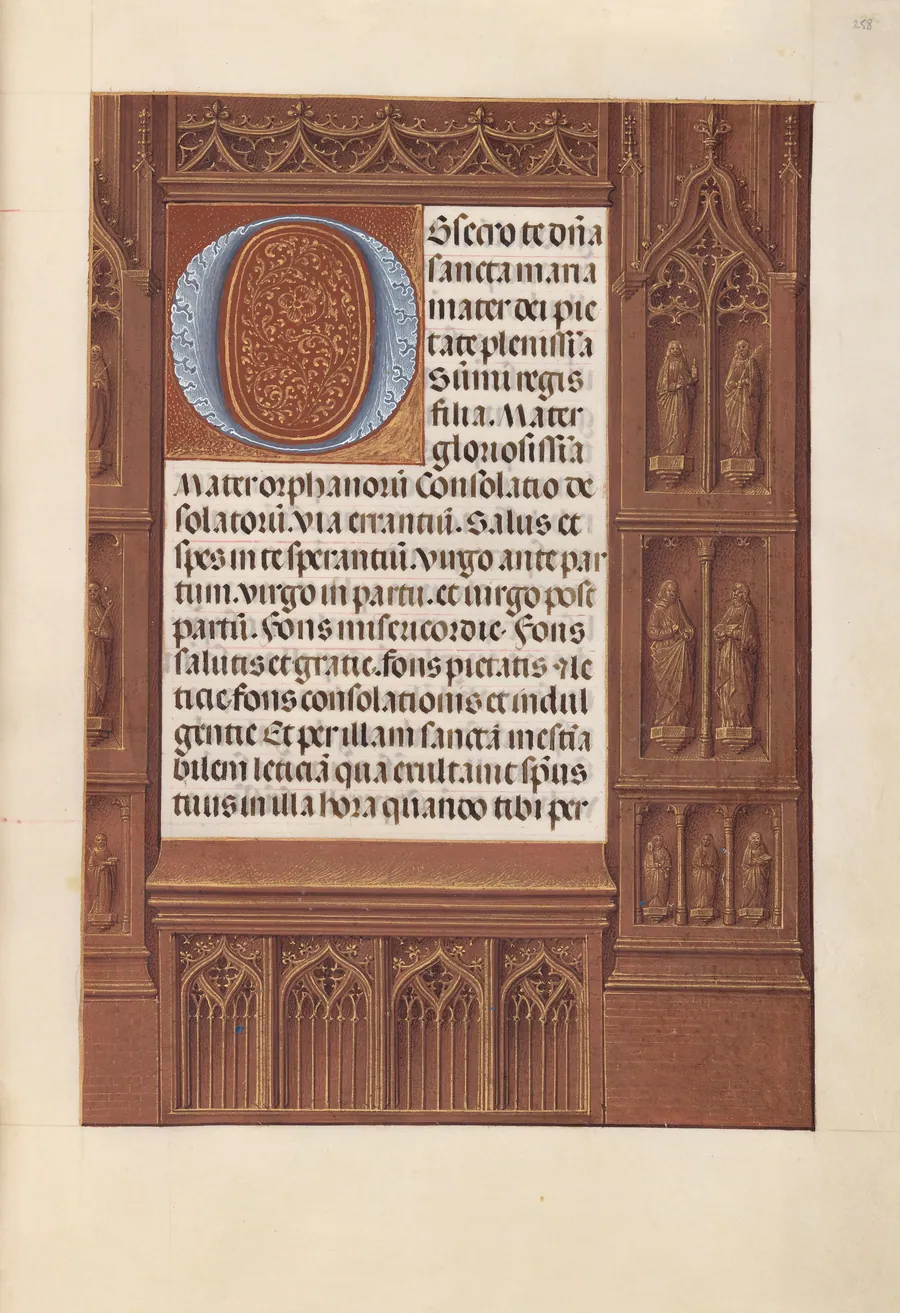 258
O
Bsecro te dn̄a
sancta maria
mater dei pie
tate plenissīa
Sūmi regis
filia. Mater
gloriosissīa
Mater orphanorū Consolatio de
solatorū. via errantiū. Salus et
spes in te sperantiū. virgo ante par
tum. virgo in partu. et uirgo post
partū. Fons misericordie. Fons
salutis et gratie. fons pietatis et le
ticie. fons consolationis et indul
gentie Et per illam sanctā inestīa
bilem leticiā qua exultauit sp̄us
tuus in illa hora quando tibi per